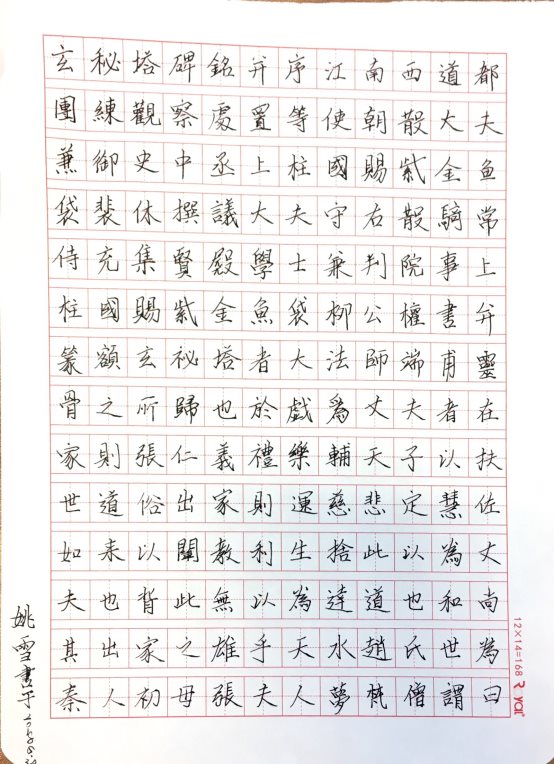 玄秘塔碑銘并序江南西道都
團練觀察處置等使朝散大夫
兼御史中丞上柱國賜紫金魚
袋裴休撰議大夫守右散騎常
侍充集賢殿學士兼判院事上
柱國賜紫金魚袋柳公權書并
篆額玄祕塔者大法師端甫靈
骨之所歸也於戲為丈夫者在
家則張仁義禮樂輔天子以扶
世道俗出家則運慈悲定慧佐
如来以闡教利生捨此以為丈
夫也背此無以為達道也和尚
其出家之雄乎天水趙氏世為
秦人初母張夫人夢梵僧謂曰
姚雪書于
12×14=168